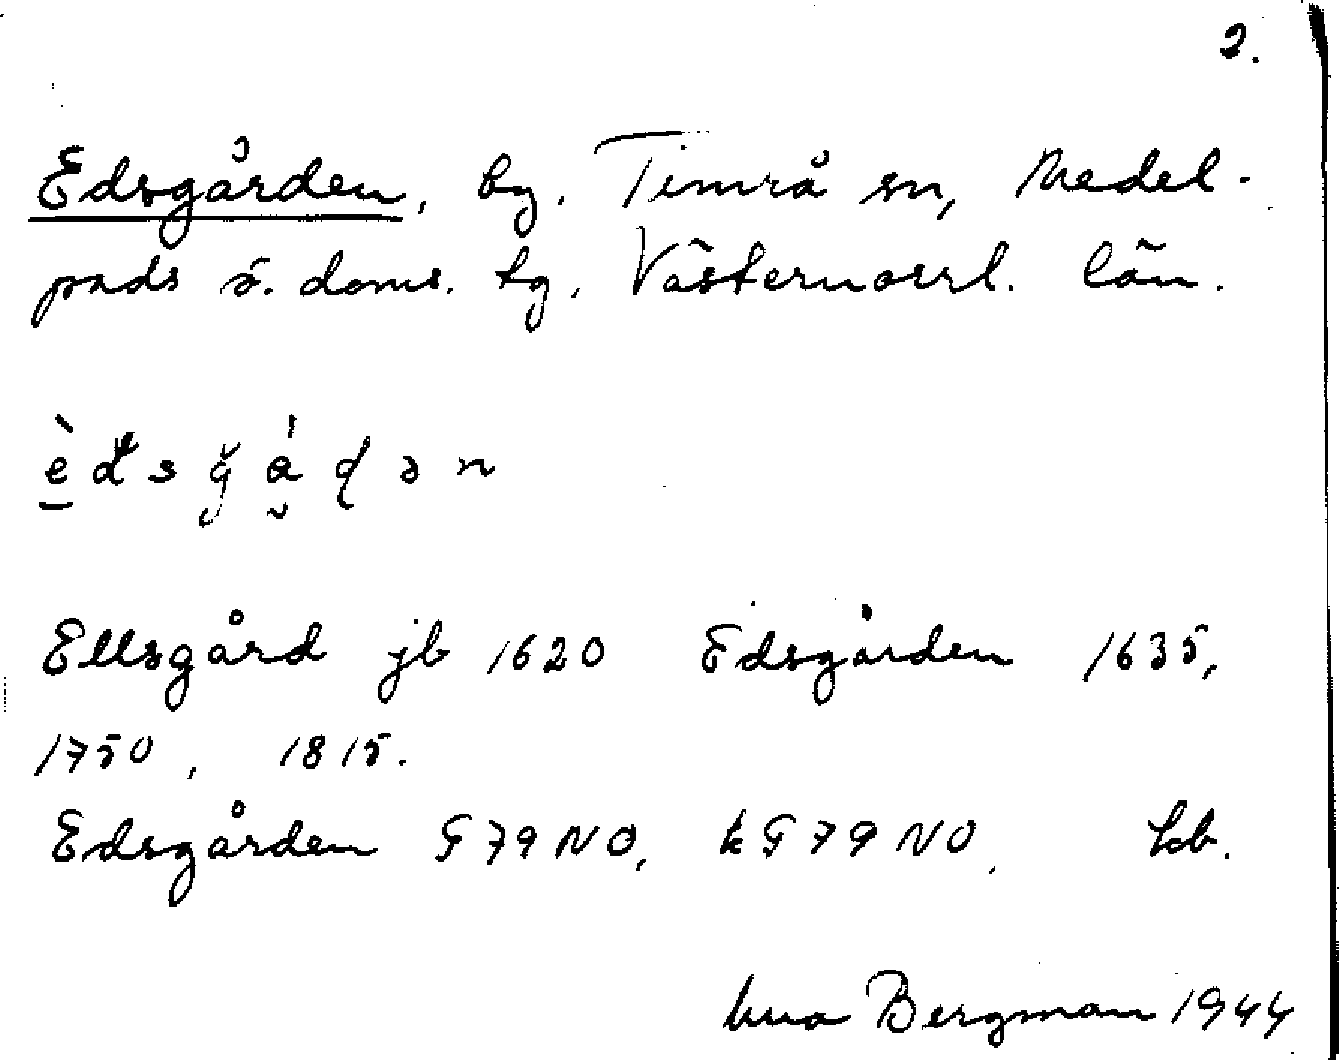 2.
Edsgården, by. Timrå sn, Medel-
pads ö. doms. tg. Västernorrl. län.
Ellsgård jb 1620 Edsgården 1635,
1750, 1815.
Edsgården G 79 NO, kG 79 NO,
Bergman 1944